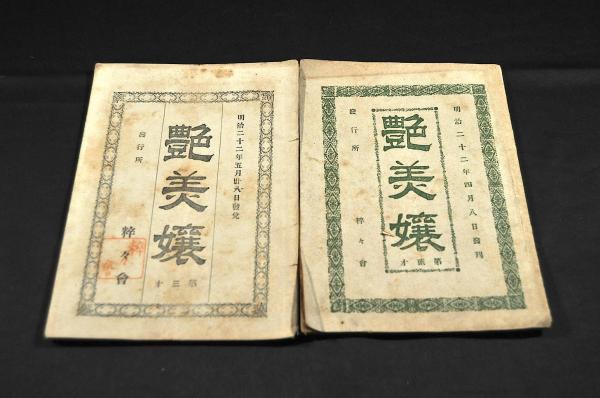 明治二十二年四月八日發刊
艶羙孃
第 才
發行所
粹々會
明治二十二年五月廿八日發兌
艶羙孃
第三才
發行所
粹々會